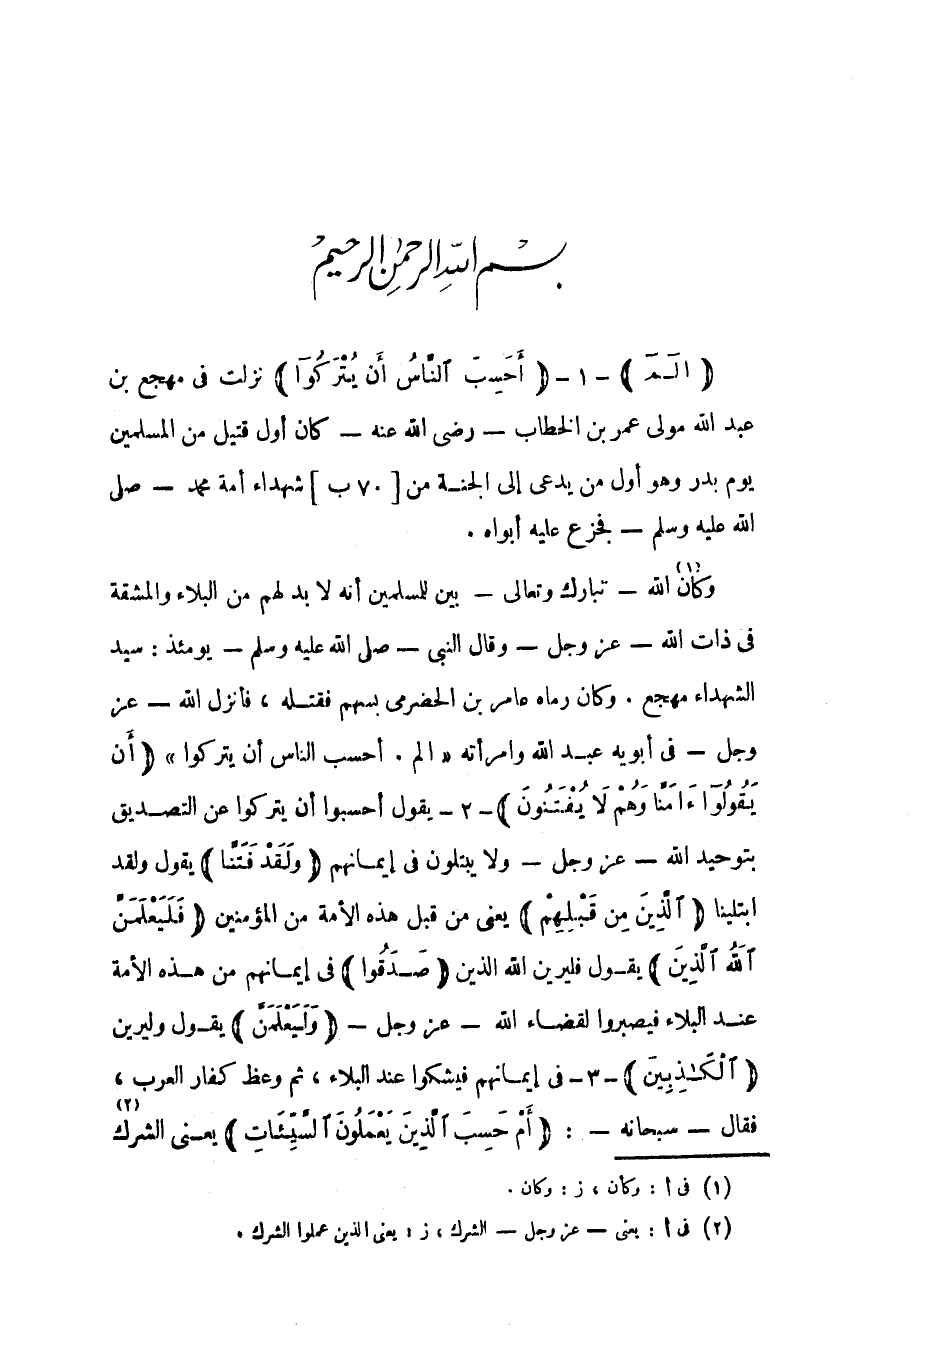 بسم الله الرحمن الرحيم
﴿ الٓمٓ ﴾ - ١ - ﴿ أَحَسِبَ ٱلنَّاسُ أَن يُتْرَكُوٓا ﴾ نزلت فى مهجع بن
عبد الله مولى عمر بن الخطاب — رضى الله عنه — كان أول قتيل من المسلمين
يوم بدر وهو أول من يدعى إلى الجنة من [ ٧٠ ب ] شهداء أمة محمد — صلى
الله عليه وسلم — فجزع عليه أبواه .
وكان (١) الله — تبارك وتعالى — بين للسلمين أنه لا بد لهم من البلاء والمشقة
فى ذات الله — عز وجل — وقال النبى — صلى الله عليه وسلم — يومئذ : سيد
الشهداء مهجع . وكان رماه عامر بن الحضرمى بسهم فقتله ، فأنزل الله — عز
وجل — فى أبويه عبد الله وامرأته « الم . أحسب الناس أن يتركوا » ﴿ أَن
يَقُولُوٓا ءَامَنَّا وَهُمْ لَا يُفْتَنُونَ ﴾ - ٢ - يقول أحسبوا أن يتركوا عن التصديق
بتوحيد الله — عز وجل — ولا يبتلون فى إيمانهم ﴿ وَلَقَدْ فَتَنَّا ﴾ يقول ولقد
ابتلينا ﴿ ٱلَّذِينَ مِن قَبْلِهِمْ ﴾ يعنى من قبل هذه الأمة من المؤمنين ﴿ فَلَيَعْلَمَنَّ
ٱللَّهُ ٱلَّذِينَ ﴾ يقول فليرين الله الذين ﴿ صَدَقُوا ﴾ فى إيمانهم من هذه الأمة
عند البلاء فيصبروا لقضاء الله — عز وجل — ﴿ وَلَيَعْلَمَنَّ ﴾ يقول وليرين
﴿ ٱلْكَـٰذِبِينَ ﴾ - ٣ - فى إيمانهم فيشكوا عند البلاء ، ثم وعظ كفار العرب ،
فقال — سبحانه — : ﴿ أَمْ حَسِبَ ٱلَّذِينَ يَعْمَلُونَ ٱلسَّيِّئَاتِ ﴾ يعنى الشرك (٢)
(١) فى أ : وكأن ، ز : وكان .
(٢) فى أ : يعنى — عز وجل — الشرك ، ز : يعنى الذين عملوا الشرك .